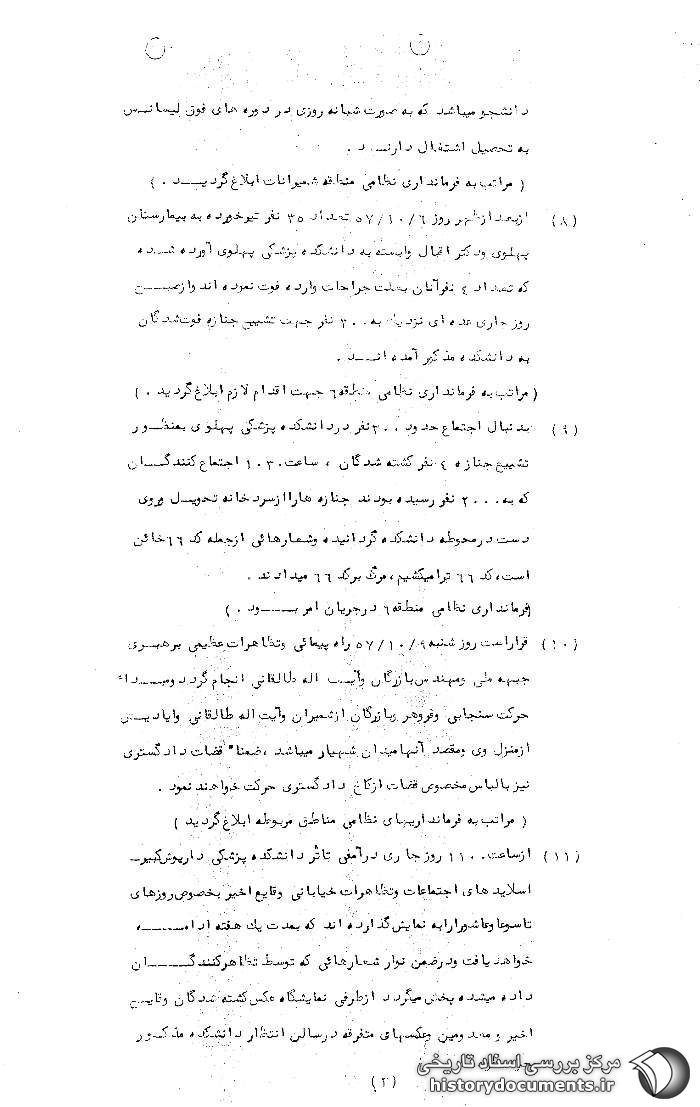 دانشجو میباشد که به صورت شبانه روزی در دوره های فوق لیسانس
به تحصیل اشتغال دارند .
( مراتب به فرمانداری نظامی منطقه شمیرانات ابلاغ گردید . )
(۸) ازبعد ازظهر روز ۵۷/۱۰/۶ تعداد ۳۵ نفر تیرخورده به بیمارستان
پهلوی ودکتر اقبال وابسته به دانشکده پزشکی پهلوی آورده شده
که تعداد ٤ نفرآنان بعلت جراحات وارده فوت نموده اند وازصبح
روز جاری عده ای نزدیک به ۳۰۰ نفر جهت تشییع جنازه فوت شدگان
به دانشکده مذکور آمده اند .
( مراتب به فرمانداری نظامی منطقه ۶ جهت اقدام لازم ابلاغ گردید . )
(۹) بدنبال اجتماع حدود ۳۰۰ نفر دردانشکده پزشکی پهلوی بمنظور
تشییع جنازه ٤ نفر کشته شدگان ، ساعت ۱۰۳۰ اجتماع کنندگان
که به ۲۰۰۰ نفر رسیده بودند جنازه هارا ازسرد خانه تحویل وروی
دست درمحوطه دانشکده گردانیده وشعارهائی ازجمله کد ۶۶ خائن
است، کد ۶۶ ترا میکشیم ، مرگ بر کد ۶۶ میدادند .
(فرمانداری نظامی منطقه ۶ درجریان امر بود . )
(۱۰) قراراست روز شنبه ۵۷/۱۰/۹ راه پیمائی وتظاهرات عظیمی برهبری
جبهه ملی ومهندس بازرگان وآیت اله طالقانی انجام گردد ومبداء
حرکت سنجابی وفروهر وبازرگان ازشمیران وآیت اله طالقانی وایادیش
ازمنزل وی ومقصد آنها میدان شهیار میباشد ، ضمنا" قضات دادگستری
نیز بالباس مخصوص قضات ازکاخ دادگستری حرکت خواهند نمود .
( مراتب به فرمانداریهای نظامی مناطق مربوطه ابلاغ گردید )
(۱۱) ازساعت ۱۱۰۰ روز جاری درآمفی تاتر دانشکده پزشکی داریوش کبیر
اسلاید های اجتماعات وتظاهرات خیابانی وقایع اخیر بخصوص روزهای
تاسوعا وعاشورارا به نمایش گذارده اند که بمدت یک هفته ادامه
خواهد یافت ودرضمن نوار شعارهائی که توسط تظاهرکنندگان
داده میشده پخش میگردد ازطرفی نمایشگاه عکس کشته شدگان وقایع
اخیر و معدومین وعکسهای متفرقه درسالن انتظار دانشکده مذکور
(۲)
مرکز بررسی اسناد تاریخی
historydocuments.ir